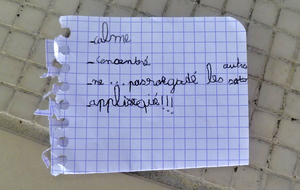 -calme
-concentré
-ne ... pas regadé les autre
-appliequé!!!